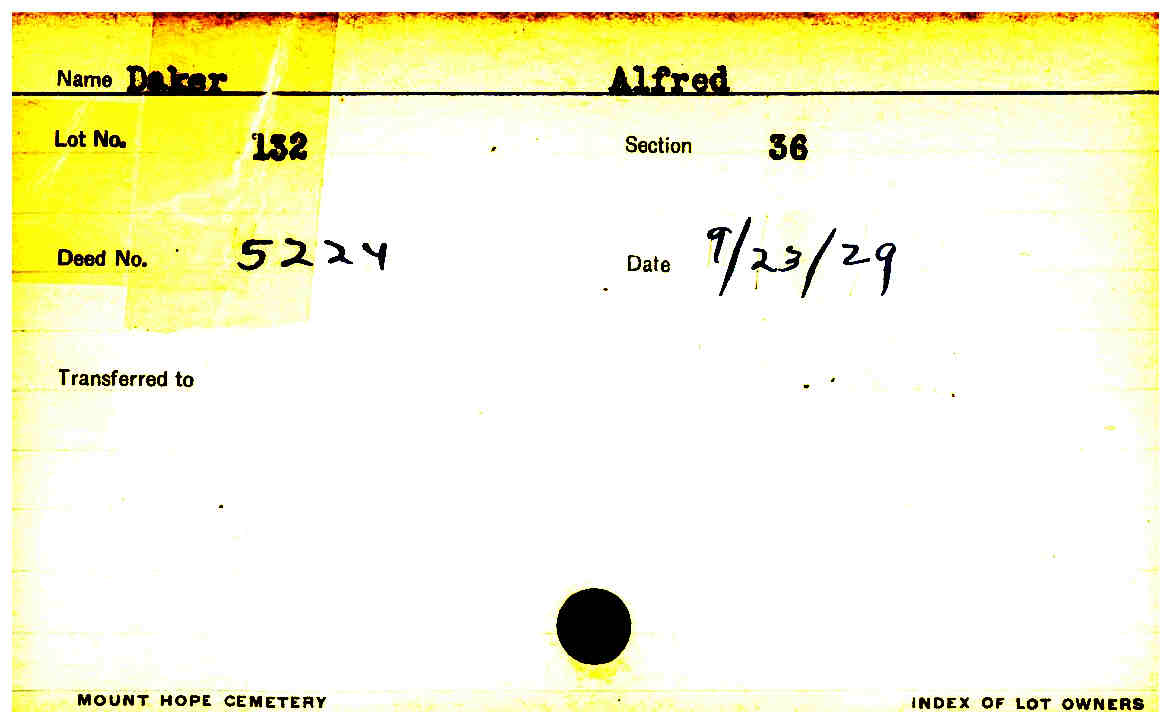 Name Daker Alfred
Lot No. 132 Section 36
Deed No. 5224 Date 9/23/29
Transferred to
MOUNT HOPE CEMETERY INDEX OF LOT OWNERS